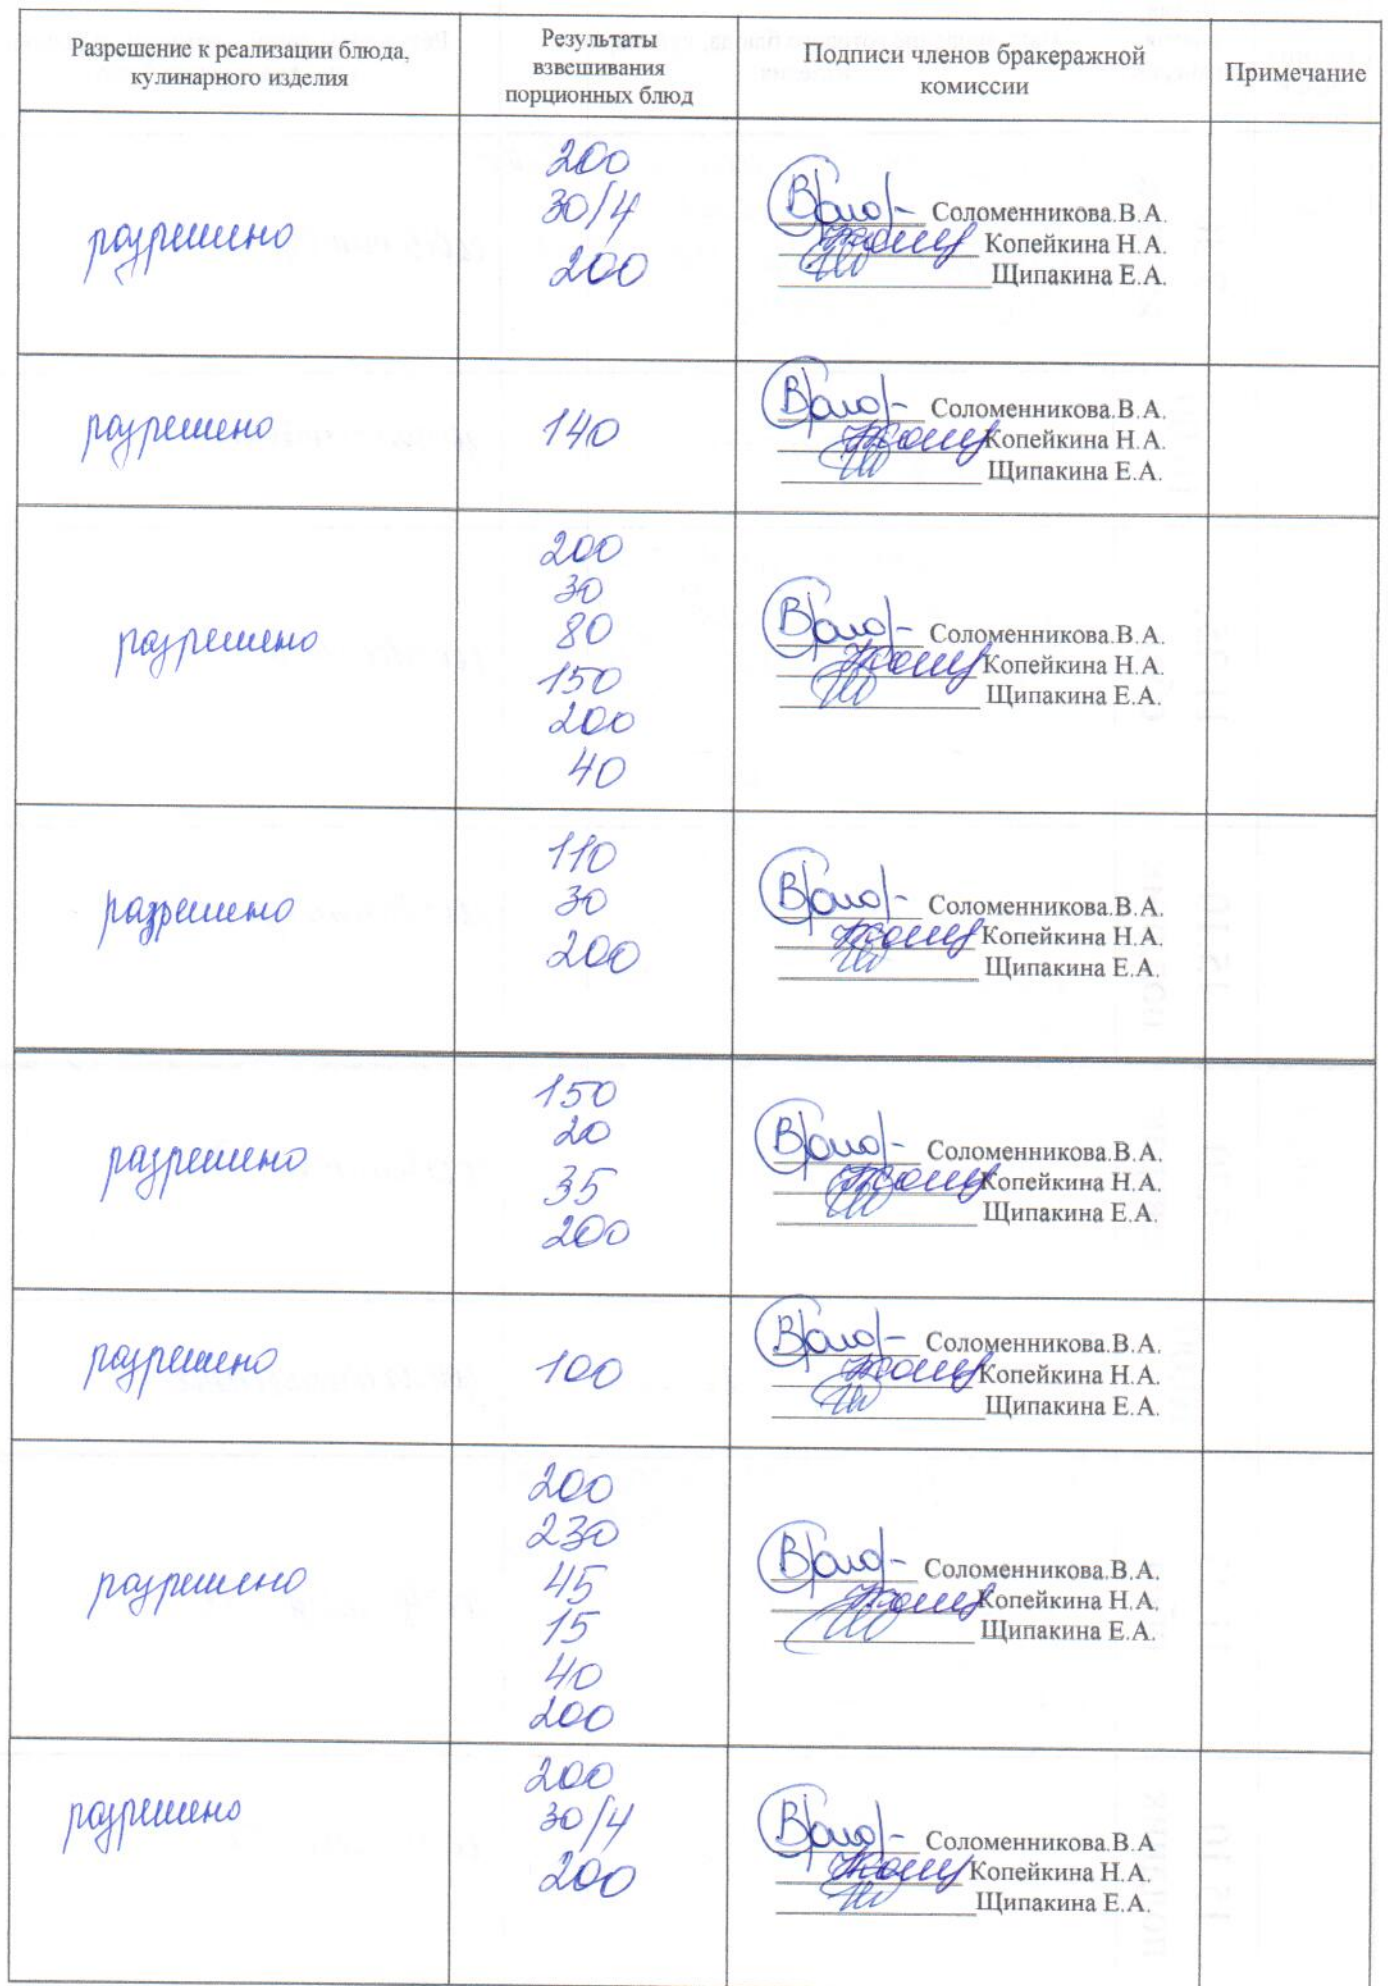 Разрешение к реализации блюда,
кулинарного изделия
Результаты
взвешивания
порционных блюд
Подписи членов бракеражной
комиссии
Примечание
разрешено
200
30/4
200
Соломенникова.В.А.
Копейкина Н.А.
Щипакина Е.А.
разрешено
140
Соломенникова.В.А.
Копейкина Н.А.
Щипакина Е.А.
разрешено
200
30
80
150
200
40
Соломенникова.В.А.
Копейкина Н.А.
Щипакина Е.А.
разрешено
110
30
200
Соломенникова.В.А.
Копейкина Н.А.
Щипакина Е.А.
разрешено
150
20
35
200
Соломенникова.В.А.
Копейкина Н.А.
Щипакина Е.А.
разрешено
100
Соломенникова.В.А.
Копейкина Н.А.
Щипакина Е.А.
разрешено
200
230
45
15
40
200
Соломенникова.В.А.
Копейкина Н.А.
Щипакина Е.А.
разрешено
200
30/4
200
Соломенникова.В.А
Копейкина Н.А.
Щипакина Е.А.